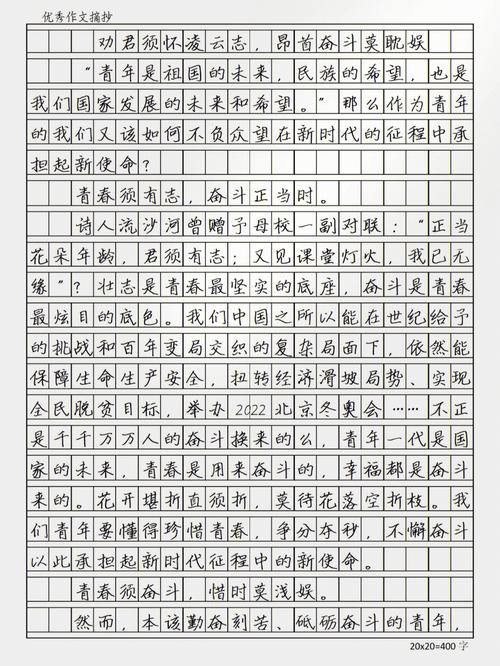 优秀作文摘抄
劝君须怀凌云志，昂首奋斗莫耽娱
“青年是祖国的未来，民族的希望，也是
我们国家发展的未来和希望。”那么作为青年
的我们又该如何不负众望在新时代的征程中承
担起新使命？
青春须有志，奋斗正当时。
诗人流沙河曾赠予母校一副对联：“正当
花朵年龄，君须有志；又见课堂灯火，我已无
缘”？壮志是青春最坚实的底座，奋斗是青春
最炫目的底色。我们中国之所以能在世纪给予
的挑战和百年变局交织的复杂局面下，依然能
保障生命生产安全，扭转经济滑坡局势、实现
全民脱贫目标，举办2022北京冬奥会……不正
是千千万万人的奋斗换来的么，青年一代是国
家的未来，青春是用来奋斗的，幸福都是奋斗
来的。花开堪折直须折，莫待花落空折枝。我
们青年要懂得珍惜青春，争分夺秒，不懈奋斗
以此承担起新时代征程中的新使命。
青春须奋斗，惜时莫浅娱。
然而，本该勤奋刻苦、砥砺奋斗的青年，
20x20=400 字